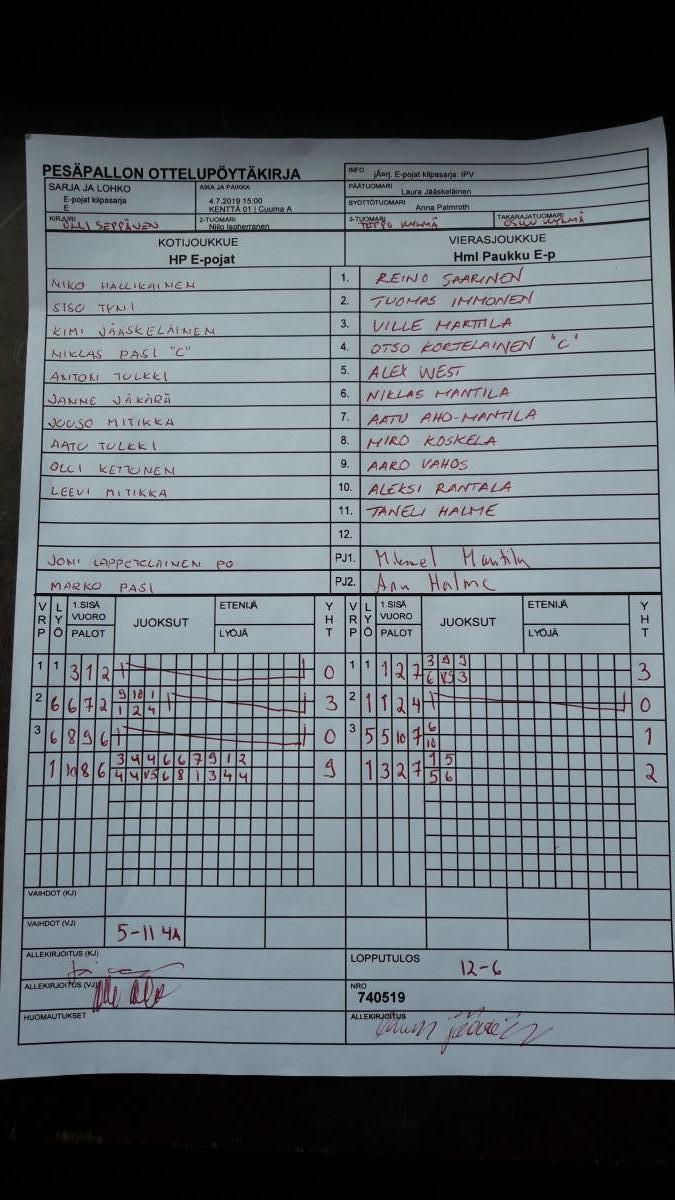 PESÄPALLON OTTELUPÖYTÄKIRJA
INFO jÄ¤rj. E-pojat kilpasarja: IPV
SARJA JA LOHKO
E-pojat kilpasarja
E
AIKA JA PAIKKA
4.7.2019 15:00
KENTTÄ 01 | Cuuma A
PÄÄTUOMARI Laura Jääskeläinen
SYÖTTÖTUOMARI Anna Palmroth
KIRJURI OLLI SEPPÄNEN
2-TUOMARI Niilo Isoherranen
3-TUOMARI TEPPO KYLMÄ
TAKARAJATUOMARI KYLMÄ
KOTIJOUKKUE
HP E-pojat
VIERASJOUKKUE
Hml Paukku E-p
NIKO HALLIKAINEN 1. REINO SAARINEN
SISO TYNI 2. TUOMAS IMMONEN
KIMI JÄÄSKELÄINEN 3. VILLE MARTTILA
NIKLAS PASI "C" 4. OTSO KORTELAINEN "C"
ANTON TULKKI 5. ALEX WEST
JANNE JÄKÄRÄ 6. NIKLAS MANTILA
JOUSO MITIKKA 7. AATU AHO-MANTILA
AATU TULKKI 8. MIRO KOSKELA
OLLI KETTUNEN 9. AARO VAHOS
LEEVI MITIKKA 10. ALEKSI RANTALA
11. TANELI HALME
12.
JONI LAPPETELÄINEN PO PJ1. Mantila
MARKO PASI PJ2. Anu Halme
VRP LYÖ 1.SISÄ VUORO PALOT JUOKSUT ETENIJÄ LYÖJÄ YHT VRP LYÖ 1.SISÄ VUORO PALOT JUOKSUT ETENIJÄ LYÖJÄ YHT
1 1 3 1 2 0 1 1 1 2 7 3 9 9 3
6 V5 3
2 6 6 7 2 9 10 1 3 2 1 1 2 4 0
1 2 4
3 6 8 9 6 0 3 5 5 10 7 6 1
10
1 10 8 6 3 4 4 6 6 7 9 1 2 9 1 3 2 7 1 5 2
4 4 V5 6 8 1 3 4 4 5 6
VAIHDOT (KJ)
VAIHDOT (VJ) 5-11 4A
ALLEKIRJOITUS (KJ)
LOPPUTULOS 12-6
ALLEKIRJOITUS (VJ)
NRO
740519
HUOMAUTUKSET
ALLEKIRJOITUS